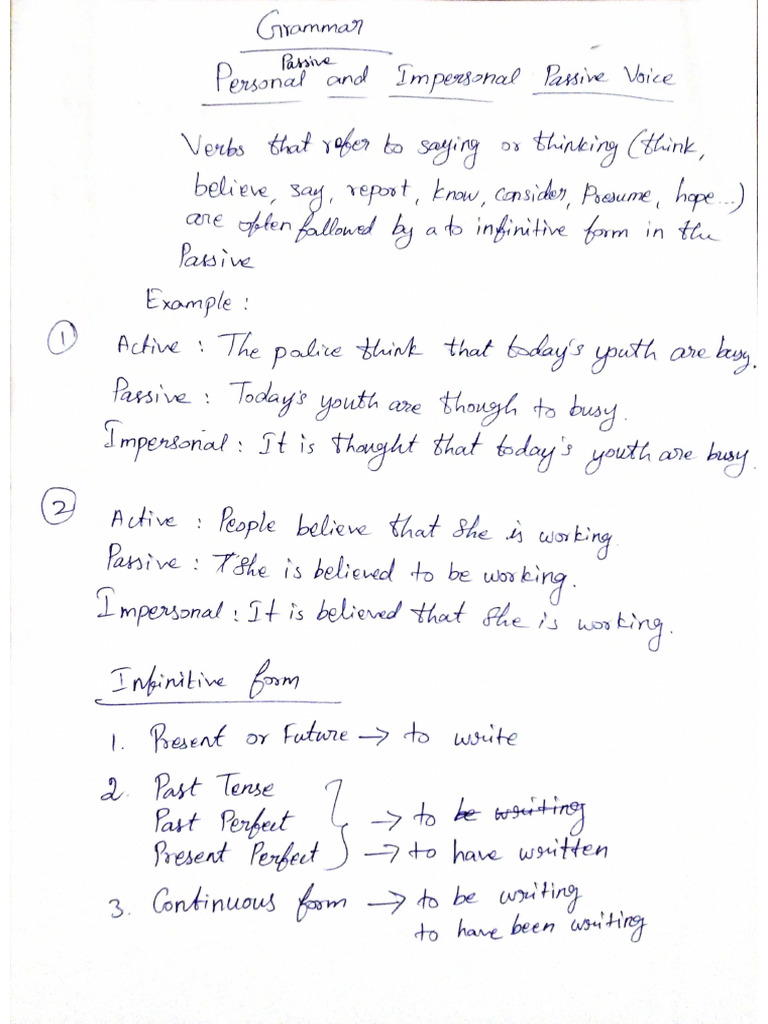 Grammar
Passive
Personal and Impersonal Passive Voice
Verbs that refer to saying or thinking (think,
believe, say, report, know, consider, Presume, hope...)
are often followed by a to infinitive form in the
Passive
Example :
1 Active : The police think that today's youth are busy.
Passive : Today's youth are though to busy.
Impersonal : It is thought that today's youth are busy.
2 Active : People believe that She is working.
Passive : She is believed to be working.
Impersonal : It is believed that She is working.
Infinitive form
1. Present or Future → to write
2. Past Tense
Past Perfect → to be writing
Present Perfect → to have written
3. Continuous form → to be writing
to have been writing